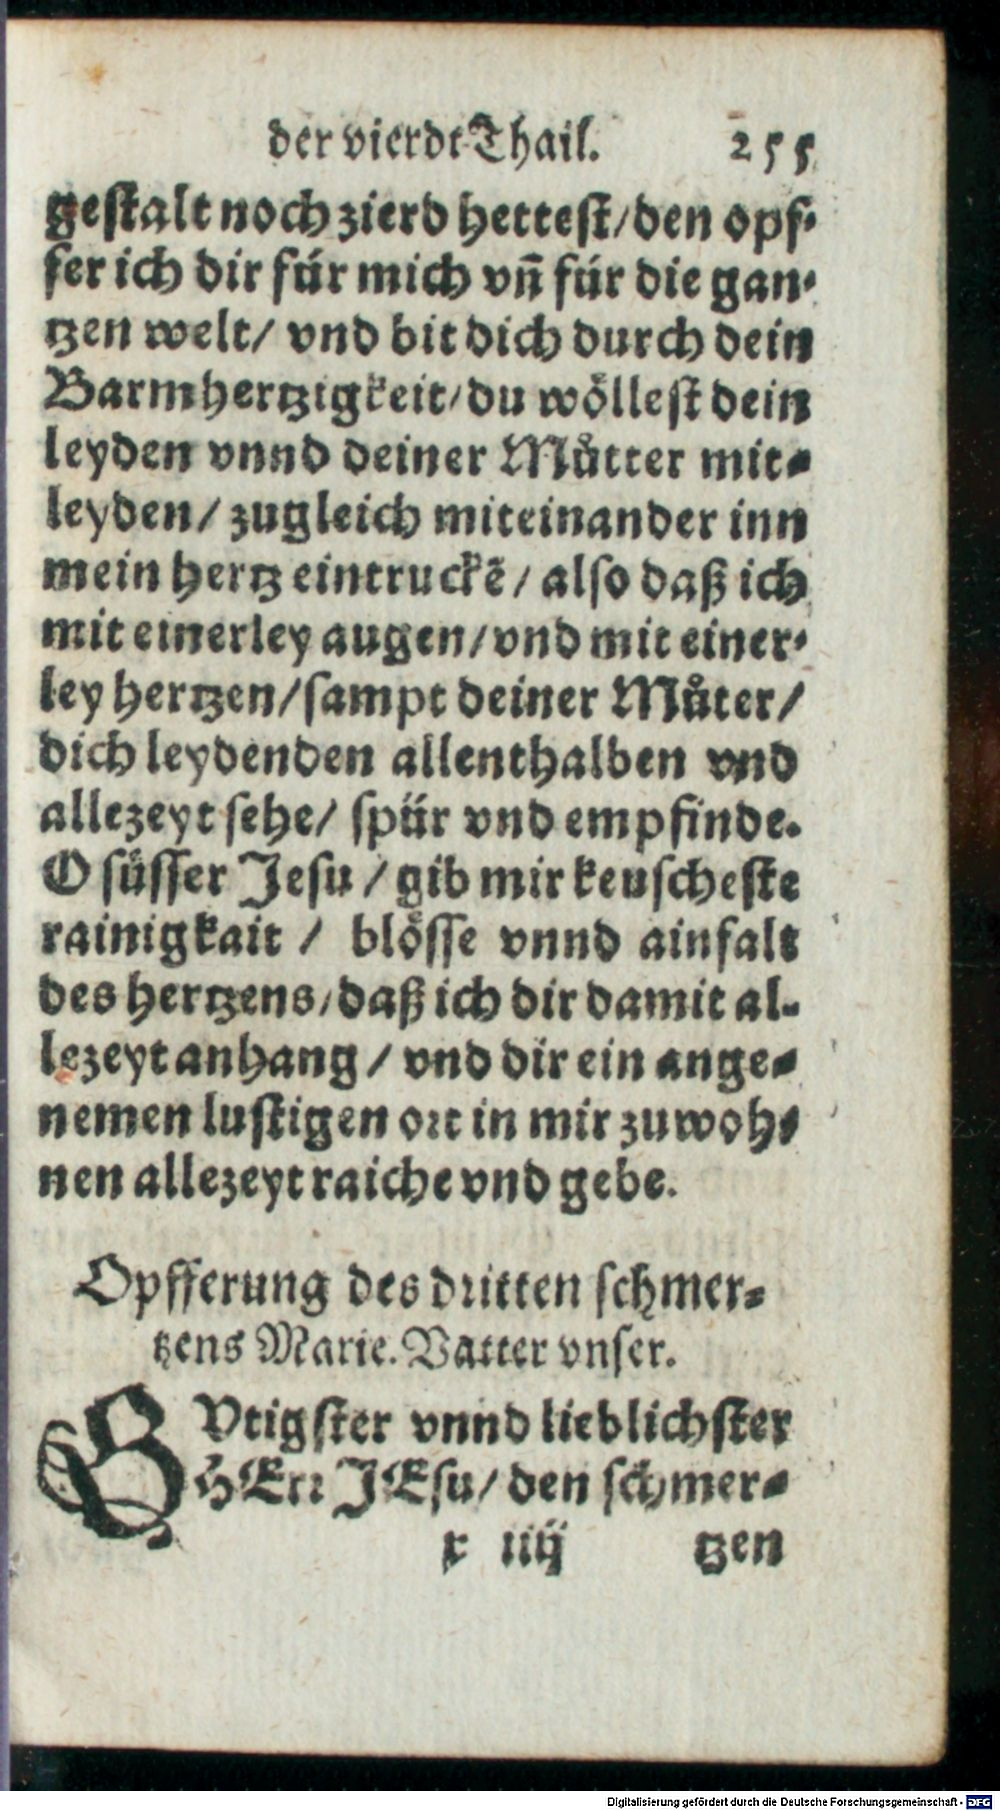 der vierdt Thail. 255
gestalt noch zierd hettest/den opf-
fer ich dir für mich vñ für die gan-
tzen welt/ vnd bit dich durch dein
Barmhertzigkeit/du wöllest dein
leyden vnnd deiner Můtter mit-
leyden/ zugleich miteinander inn
mein hertz eintruckē/ also daß ich
mit einerley augen/vnd mit einer-
ley hertzen/sampt deiner Můter/
dich leydenden allenthalben vnd
allezeyt sehe/ spür vnd empfinde.
O süsser Jesu / gib mir keuscheste
rainigkait / blösse vnnd ainfalt
des hertzens/daß ich dir damit al-
lezeyt anhang / vnd dir ein ange-
nemen lustigen ort in mir zu woh-
nen allezeyt raiche vnd gebe.
Opfferung des dritten schmer-
tzens Marie. Vatter vnser.
GVtigster vnnd lieblichster
HErr JEsu/ den schmer-
x iiij tzen
Digitalisierung gefördert durch die Deutsche Forschungsgemeinschaft - DFG